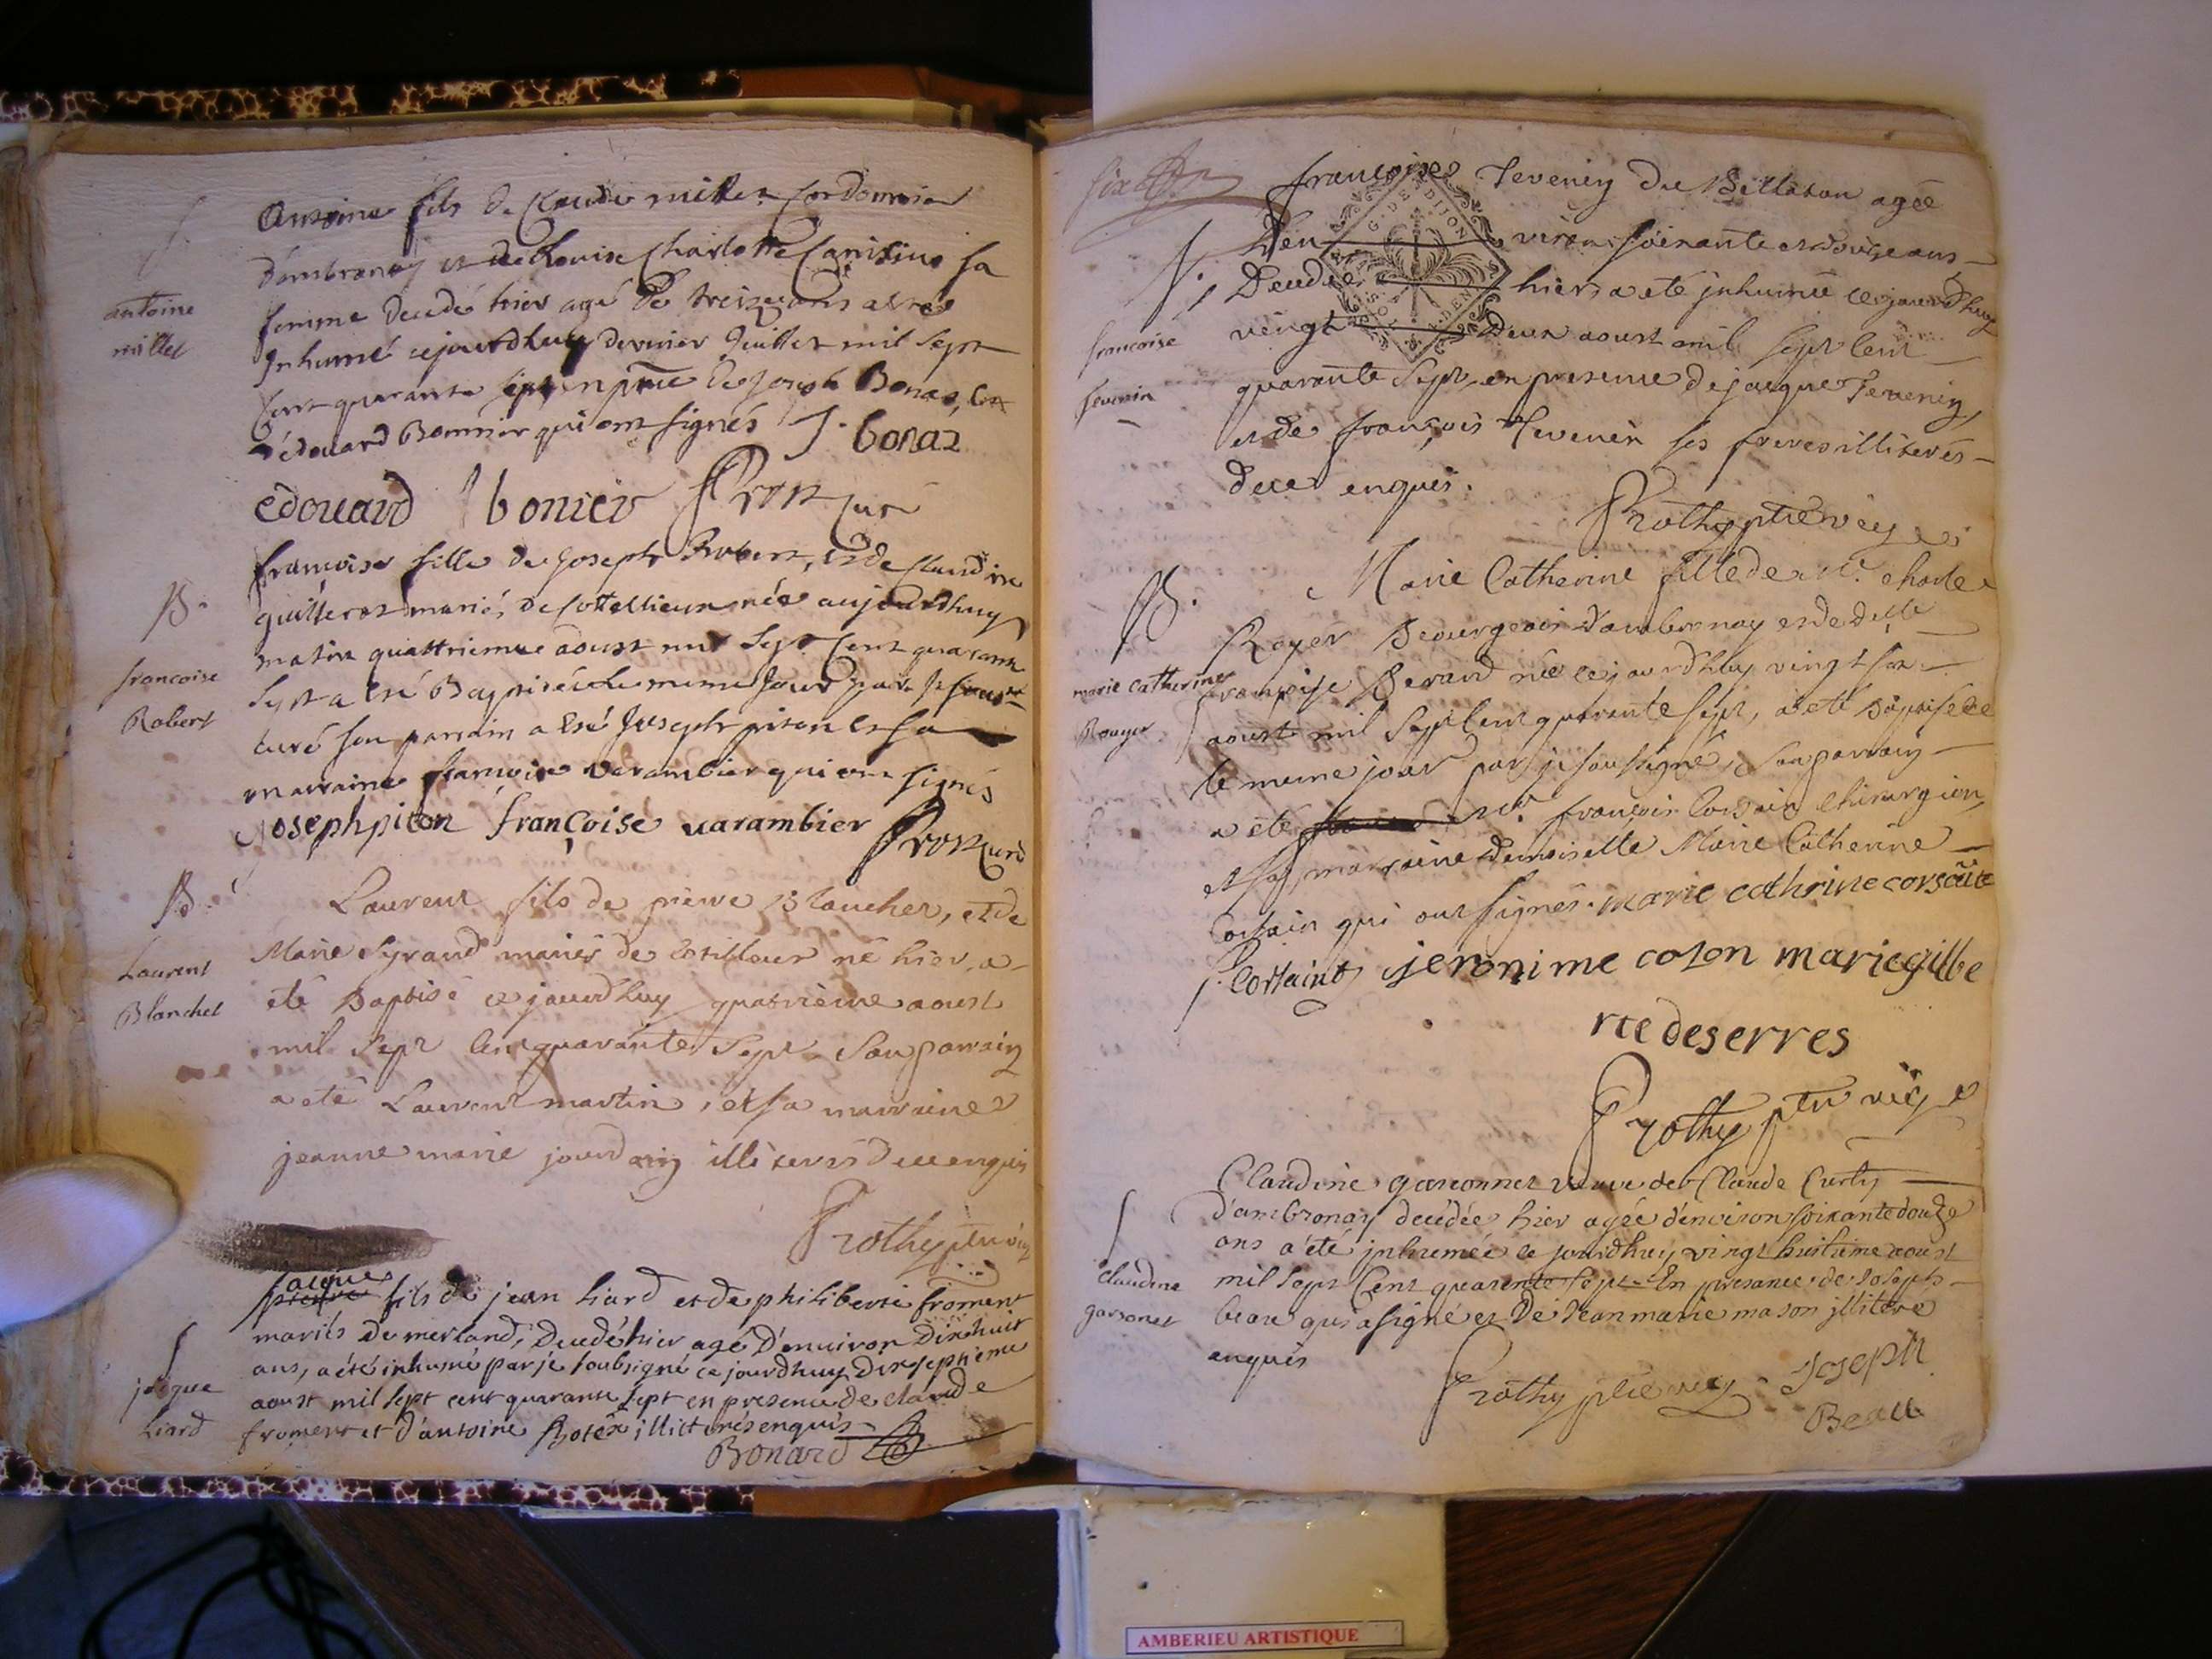 antoine
millet
Antoine fils de Claude millet Cordonnier
d'ambronay et de Louise Charlotte sa
femme decedé hier agé de treize ans a eté
Inhumé cejourdhuy dernier Juillet mil sept
Cent quarante sept en pnce de Joseph Bonaz, et
edouard Bonnier qui ont signés J. bonaz
edouard bonier Pron curé
B.
francoise
Robert
françoise fille de Joseph Robert, et de Claudine
mariés, de Cottellieux née aujourdhuy
matin quattrieme aoust mil sept Cent quarante
sept a eté Baptisée le meme Jour par Je
curé son parrain a eté Joseph piton et sa
marraine françoise varambier qui ont signés
Joseph piton françoise varambier Pron curé
B.
Laurent
Blanchet
Laurent fils de pierre Blanchet, et de
Marie Syraud mariés de né hier, a
eté Baptisé ce jourdhuy quatrieme aoust
mil sept Cent quarante sept. Son parrain
a eté Laurent martin, et sa marraine
jeanne marie jourdain illiterés de ce enquis
Prothy ptre vic
jacque
liard
jacque
pierre fils de jean liard et de philiberte froment
mariés de merland, decedé hier agé d'environ dixhuit
ans, a été inhumé par je soubsigné ce jourdhuy dixseptieme
aoust mil sept cent quarante sept en presence de claude
froment et d'antoine illitterés enquis
Bonard
six
francoise
tevenin
françoise Tevenin du agée
d'en viron soixante et douze ans
Decedée hier, a eté inhumée ce jourdhuy
vingt Deux aoust mil sept Cent
G. DE DIJON
quarante sept, en presence de jacque Tevenin,
et de françois Tevenin ses freres illiterés
de ce enquis.
Prothy ptre vic
B.
marie Catherine
Rouyer
Marie Catherine fille de Sr. charle
Royer Bourgeois d'ambronay et de dlle
françoise née ce jourdhuy vingt six
aoust mil sept Cent quarante sept, a eté Baptisée
le meme jour par je sousigné, son parrain
a eté Sr. françois Corsain Chirurgien,
et sa marraine demoiselle Marie Catherine
Corsain qui ont signés. marie cathrine corsain
f. Corsaint jeronime colon marie gilbe
rte deserres
Prothy ptre vic
claudine
garsonet
Claudine garconnet veuve de Claude Curty
d'ambronay decédée hier agée d'environ soixante douze
ans a été inhumée ce jourdhuy vingt huitieme aoust
mil sept Cent quarante sept En presance de Joseph
beau qui a signé et de Jean marie mason illitere
enquis
Prothy ptre vic Joseph
Beau
AMBERIEU ARTISTIQUE